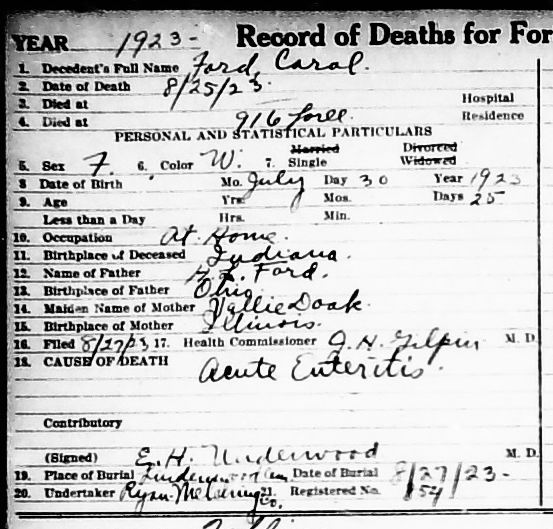 YEAR 1923- Record of Deaths for For
1. Decedent's Full Name Ford, Carol.
2. Date of Death 8/25/23.
3. Died at Hospital
4. Died at 916 Residence
PERSONAL AND STATISTICAL PARTICULARS
5. Sex F. 6. Color W. 7. Married Single Divorced Widowed
8 Date of Birth Mo. July Day 30 Year 1923
9. Age Yrs. Mos. Days 25
Less than a Day Hrs. Min.
10. Occupation At Home.
11. Birthplace of Deceased Indiana.
12. Name of Father H. L. Ford.
13. Birthplace of Father Ohio
14. Maiden Name of Mother Vallie Doak.
15. Birthplace of Mother Illinois.
16. Filed 8/27/23 17. Health Commissioner J. H. Gilpin M. D.
18. CAUSE OF DEATH Acute Enteritis.
Contributory
(Signed) E. H. Underwood M. D.
19. Place of Burial Lindenwood Cem Date of Burial 8/27/23-
20. Undertaker Ryan 21. Registered No.